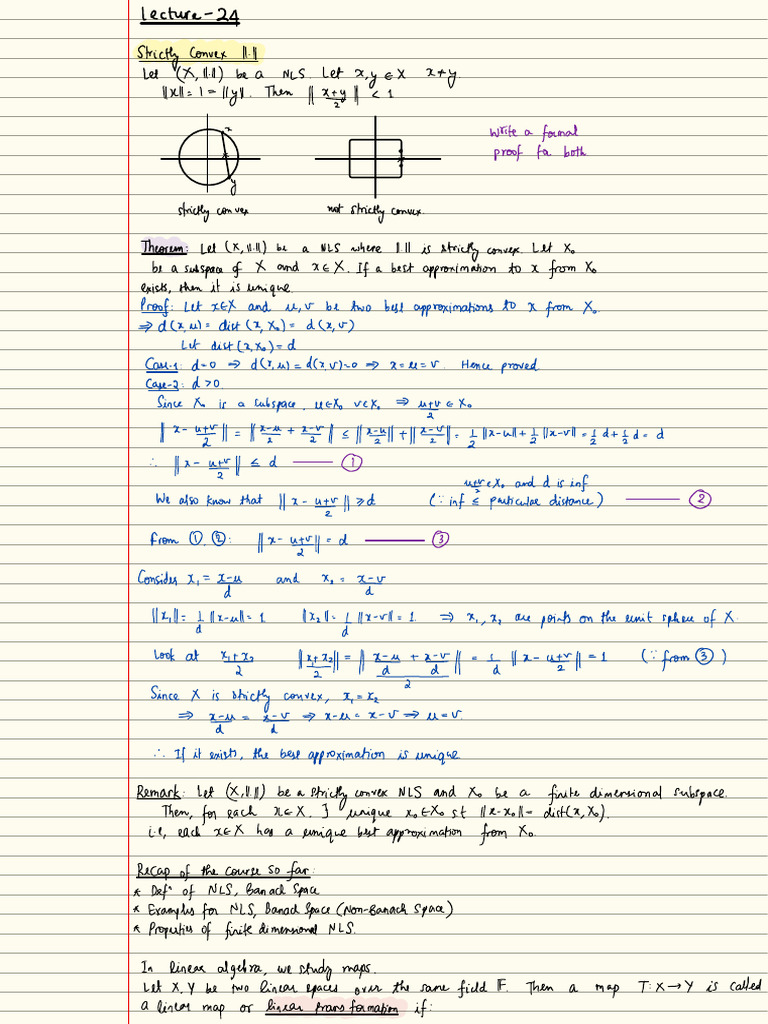 Lecture-24
Strictly Convex ||.||
Let (X, ||.||) be a NLS. Let x, y ∈ X x≠y
||x|| = 1 = ||y||. Then || (x+y)/2 || < 1
x
y
strictly convex
not strictly convex.
Write a formal
proof for both
Theorem: Let (X, ||.||) be a NLS where ||.|| is strictly convex. Let X₀
be a subspace of X and x ∈ X. If a best approximation to x from X₀
exists, then it is unique.
Proof: Let x∈X and u, v be two best approximations to x from X₀.
⇒ d(x,u) = dist (x, X₀) = d(x,v)
Let dist(x, X₀) = d
Case-1: d=0 ⇒ d(x,u) = d(x,v)=0 ⇒ x=u=v. Hence proved
Case-2: d>0
Since X₀ is a subspace, u∈X₀ v∈X₀ ⇒ (u+v)/2 ∈ X₀
|| x - (u+v)/2 || = || (x-u)/2 + (x-v)/2 || ≤ || (x-u)/2 || + || (x-v)/2 || = 1/2 ||x-u|| + 1/2 ||x-v|| = 1/2 d + 1/2 d = d
∴ || x - (u+v)/2 || ≤ d —— ①
We also know that || x - (u+v)/2 || ≥ d
(u+v)/2 ∈ X₀ and d is inf
(∵ inf ≤ particular distance) —— ②
From ①, ②: || x - (u+v)/2 || = d —— ③
Consider x₁ = (x-u)/d and x₂ = (x-v)/d
||x₁|| = 1/d ||x-u|| = 1 ||x₂|| = 1/d ||x-v|| = 1 ⇒ x₁, x₂ are points on the unit sphere of X.
Look at (x₁+x₂)/2 || (x₁+x₂)/2 || = || ((x-u)/d + (x-v)/d)/2 || = 1/d || x - (u+v)/2 || = 1 (∵ from ③)
Since X is strictly convex, x₁ = x₂
⇒ (x-u)/d = (x-v)/d ⇒ x-u = x-v ⇒ u=v.
∴ If it exists, the best approximation is unique
Remark: Let (X, ||.||) be a strictly convex NLS and X₀ be a finite dimensional subspace.
Then, for each x∈X, ∃ unique x₀∈X₀ st ||x-x₀|| = dist(x, X₀).
i.e, each x∈X has a unique best approximation from X₀.
Recap of the course so far:
* Defⁿ of NLS, Banach Space
* Examples for NLS, Banach Space (Non-Banach Space)
* Properties of finite dimensional NLS.
In linear algebra, we study maps.
Let X, Y be two linear spaces over the same field F. Then a map T: X → Y is called
a linear map or linear transformation if: